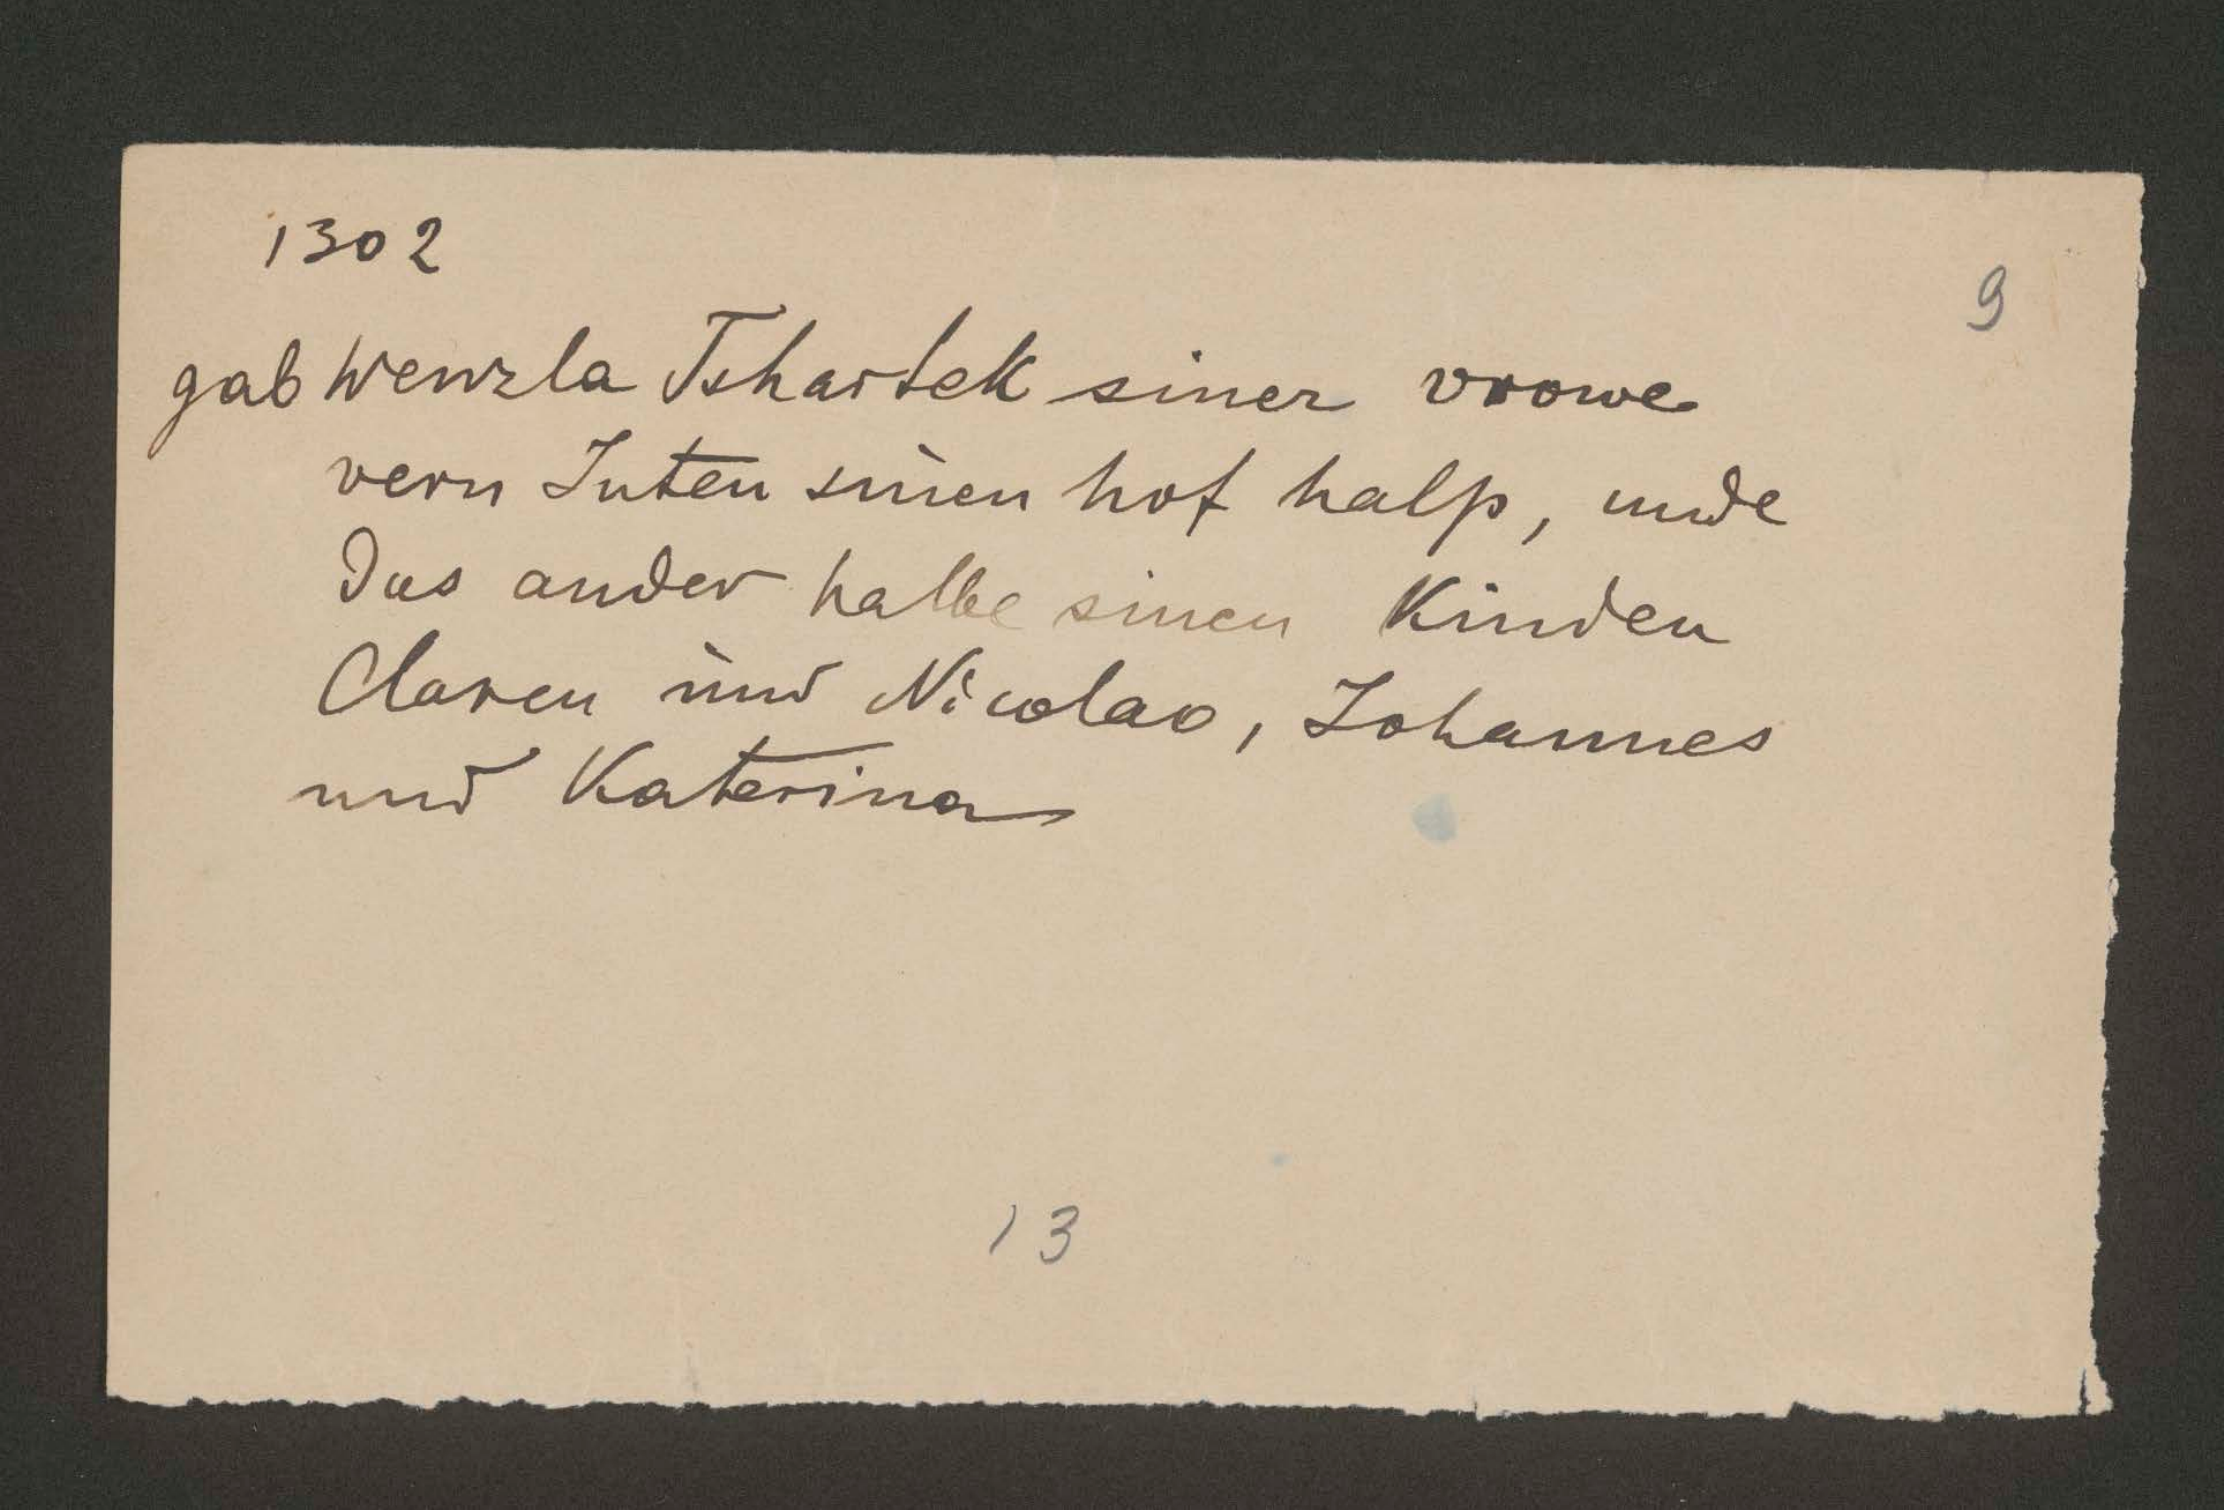 1302
9
gab Wenzla Tshartek siner vrowe
vern Juten sinen hof halp, unde
das ander halbe sinen Kinden
Claren und Nicolao, Johannes
und Katerina
13